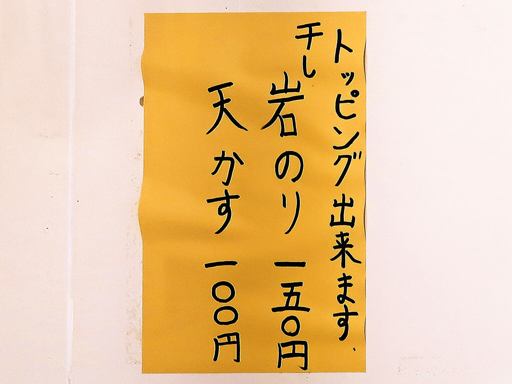 トッピング出来ます。
干し岩のり 一五〇円
天かす 一〇〇円